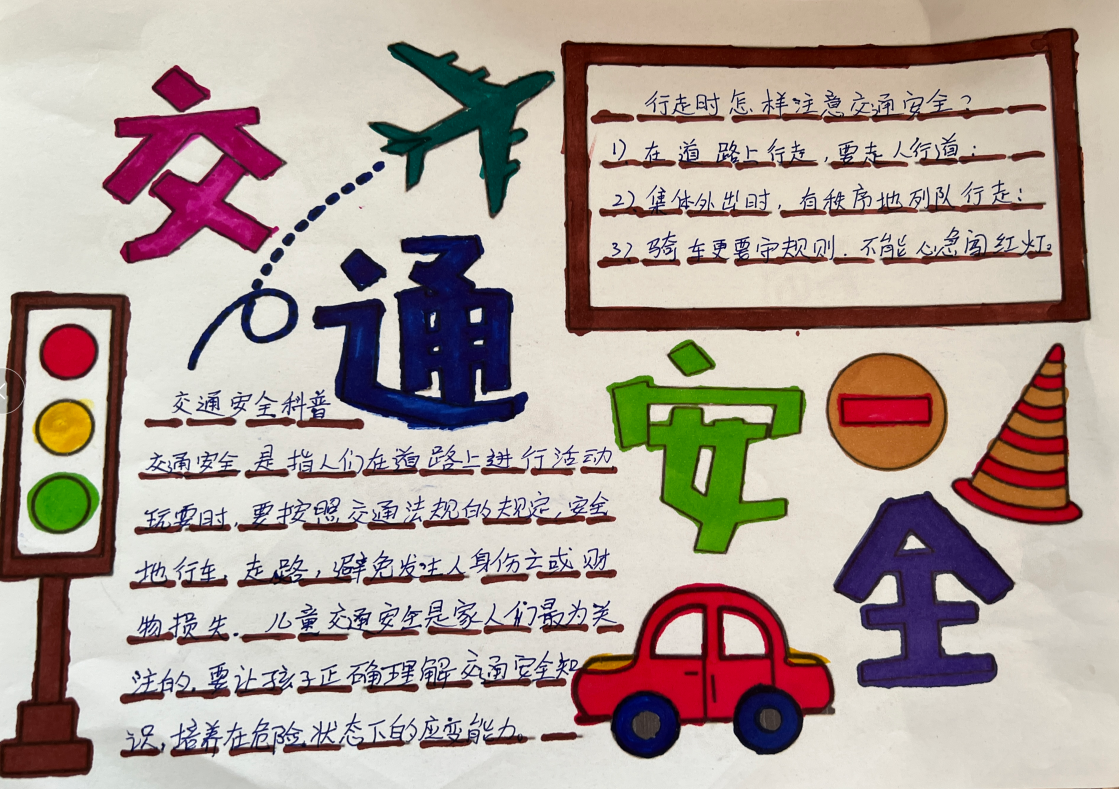 交通
安全
行走时怎样注意交通安全?
1)在道路上行走,要走人行道;
2)集体外出时,有秩序地列队行走;
3)骑车更要守规则.不能心急闯红灯。
交通安全科普
交通安全是指人们在道路上进行活动
玩耍时,要按照交通法规的规定,安全
地行车,走路,避免发生人身伤亡或财
物损失.儿童交通安全是家人们最为关
注的,要让孩子正确理解交通安全知
识,培养在危险状态下的应变能力。